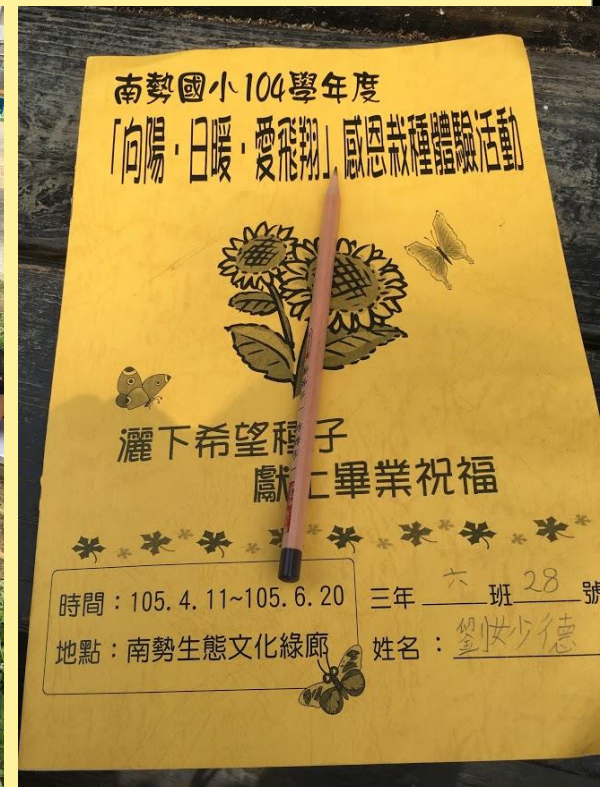 南勢國小104學年度
「向陽・日暖・愛飛翔」感恩栽種體驗活動
灑下希望種子
獻上畢業祝福
時間：105.4.11~105.6.20
地點：南勢生態文化綠廊
三年 六 班 28 號
姓名：劉妙德